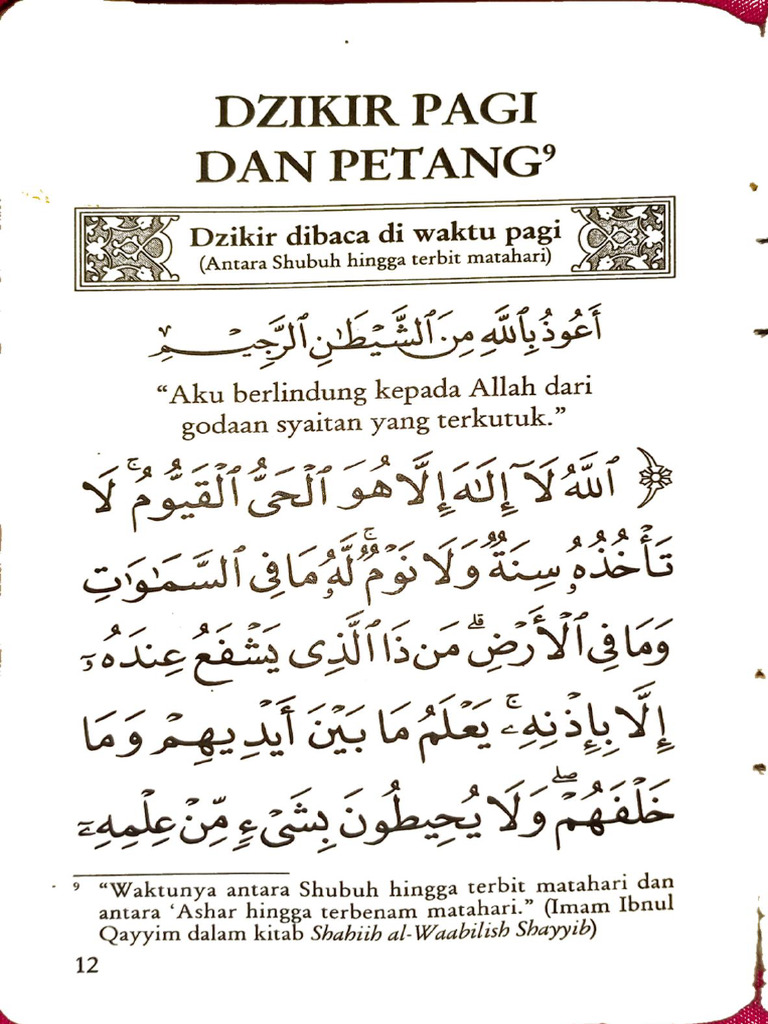 DZIKIR PAGI
DAN PETANG⁹
Dzikir dibaca di waktu pagi
(Antara Shubuh hingga terbit matahari)
أَعُوذُ بِٱللَّهِ مِنَ ٱلشَّيْطَٰنِ ٱلرَّجِيمِ
“Aku berlindung kepada Allah dari
godaan syaitan yang terkutuk.”
﴿ ٱللَّهُ لَآ إِلَٰهَ إِلَّا هُوَ ٱلْحَىُّ ٱلْقَيُّومُ ۚ لَا
تَأْخُذُهُۥ سِنَةٌ وَلَا نَوْمٌ ۚ لَّهُۥ مَا فِى ٱلسَّمَٰوَٰتِ
وَمَا فِى ٱلْأَرْضِ ۗ مَن ذَا ٱلَّذِى يَشْفَعُ عِندَهُۥٓ
إِلَّا بِإِذْنِهِۦ ۚ يَعْلَمُ مَا بَيْنَ أَيْدِيهِمْ وَمَا
خَلْفَهُمْ ۖ وَلَا يُحِيطُونَ بِشَىْءٍ مِّنْ عِلْمِهِۦٓ
⁹ “Waktunya antara Shubuh hingga terbit matahari dan
antara ‘Ashar hingga terbenam matahari.” (Imam Ibnul
Qayyim dalam kitab Shahiih al-Waabilish Shayyib)
12